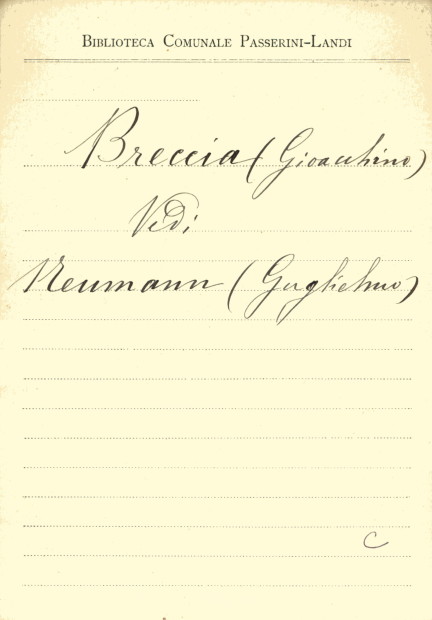 Biblioteca Comunale Passerini-Landi
Breccia (Gioachino)
Vedi
Neumann (Guglielmo)
C